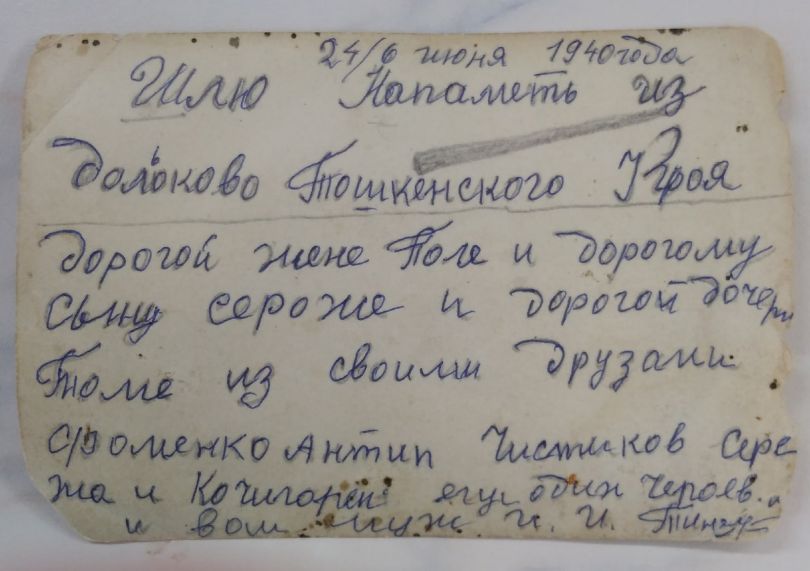 24/6 июня 1940 года
Шлю Напаметь из
Далького Ташкенского Края
Дорогой жене Поле и дорогому
Сыну сероже и дорогой дочери
Томе из своими друзами
Фоменко Антип Чистиков Сере
жа и Кочигарси егце один Чероев. и
и вам муж И. И.